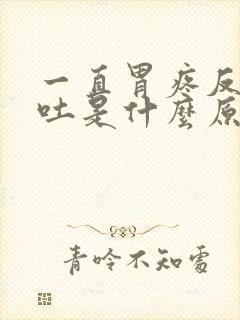 一直胃疼反
吐是什麼原
青呤不知處